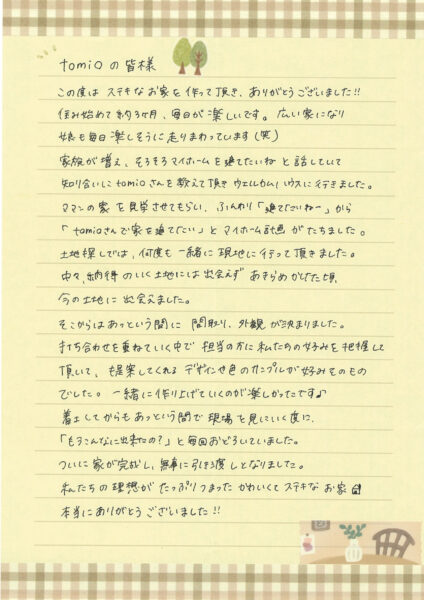 tomioの皆様
この度は ステキな お家を 作って頂き、ありがとうございました!!
住み始めて 約3ヶ月、毎日が 楽しいです。広い家になり
娘も毎日 楽しそうに 走りまわっています(笑)
家族が増え、そろそろマイホームを 建てたいね と 話していて
知り合いに tomioさんを 教えて頂き ウェルカムハウスに行きました。
ママンの家 を 見学させてもらい、ふんわり「建てたいねー」から
「tomioさんで家を建てたい」と マイホーム計画 がたちました。
土地探しでは、何度も 一緒に 現地に 行って 頂きました。
中々、納得 のいく土地には 出会えず あきらめかけてた頃、
今の土地に 出会えました。
そこからは あっという間に 間取り、外観 が決まりました。
打ち合わせを 重ねていく中で 担当の方に 私たちの好みを 把握して
頂いて、提案してくれる デザインや色のサンプルが 好みそのもの
でした。一緒に 作り上げていくのが 楽しかったです♪
着工してからも あっという間で 現場 を 見にいく度に、
「もうこんなに出来たの?」と毎回おどろいていました。
ついに 家が完成し、無事に引き渡しとなりました。
私たちの 理想が たっぷりつまった かわいくて ステキな お家
本当に ありがとう ございました!!